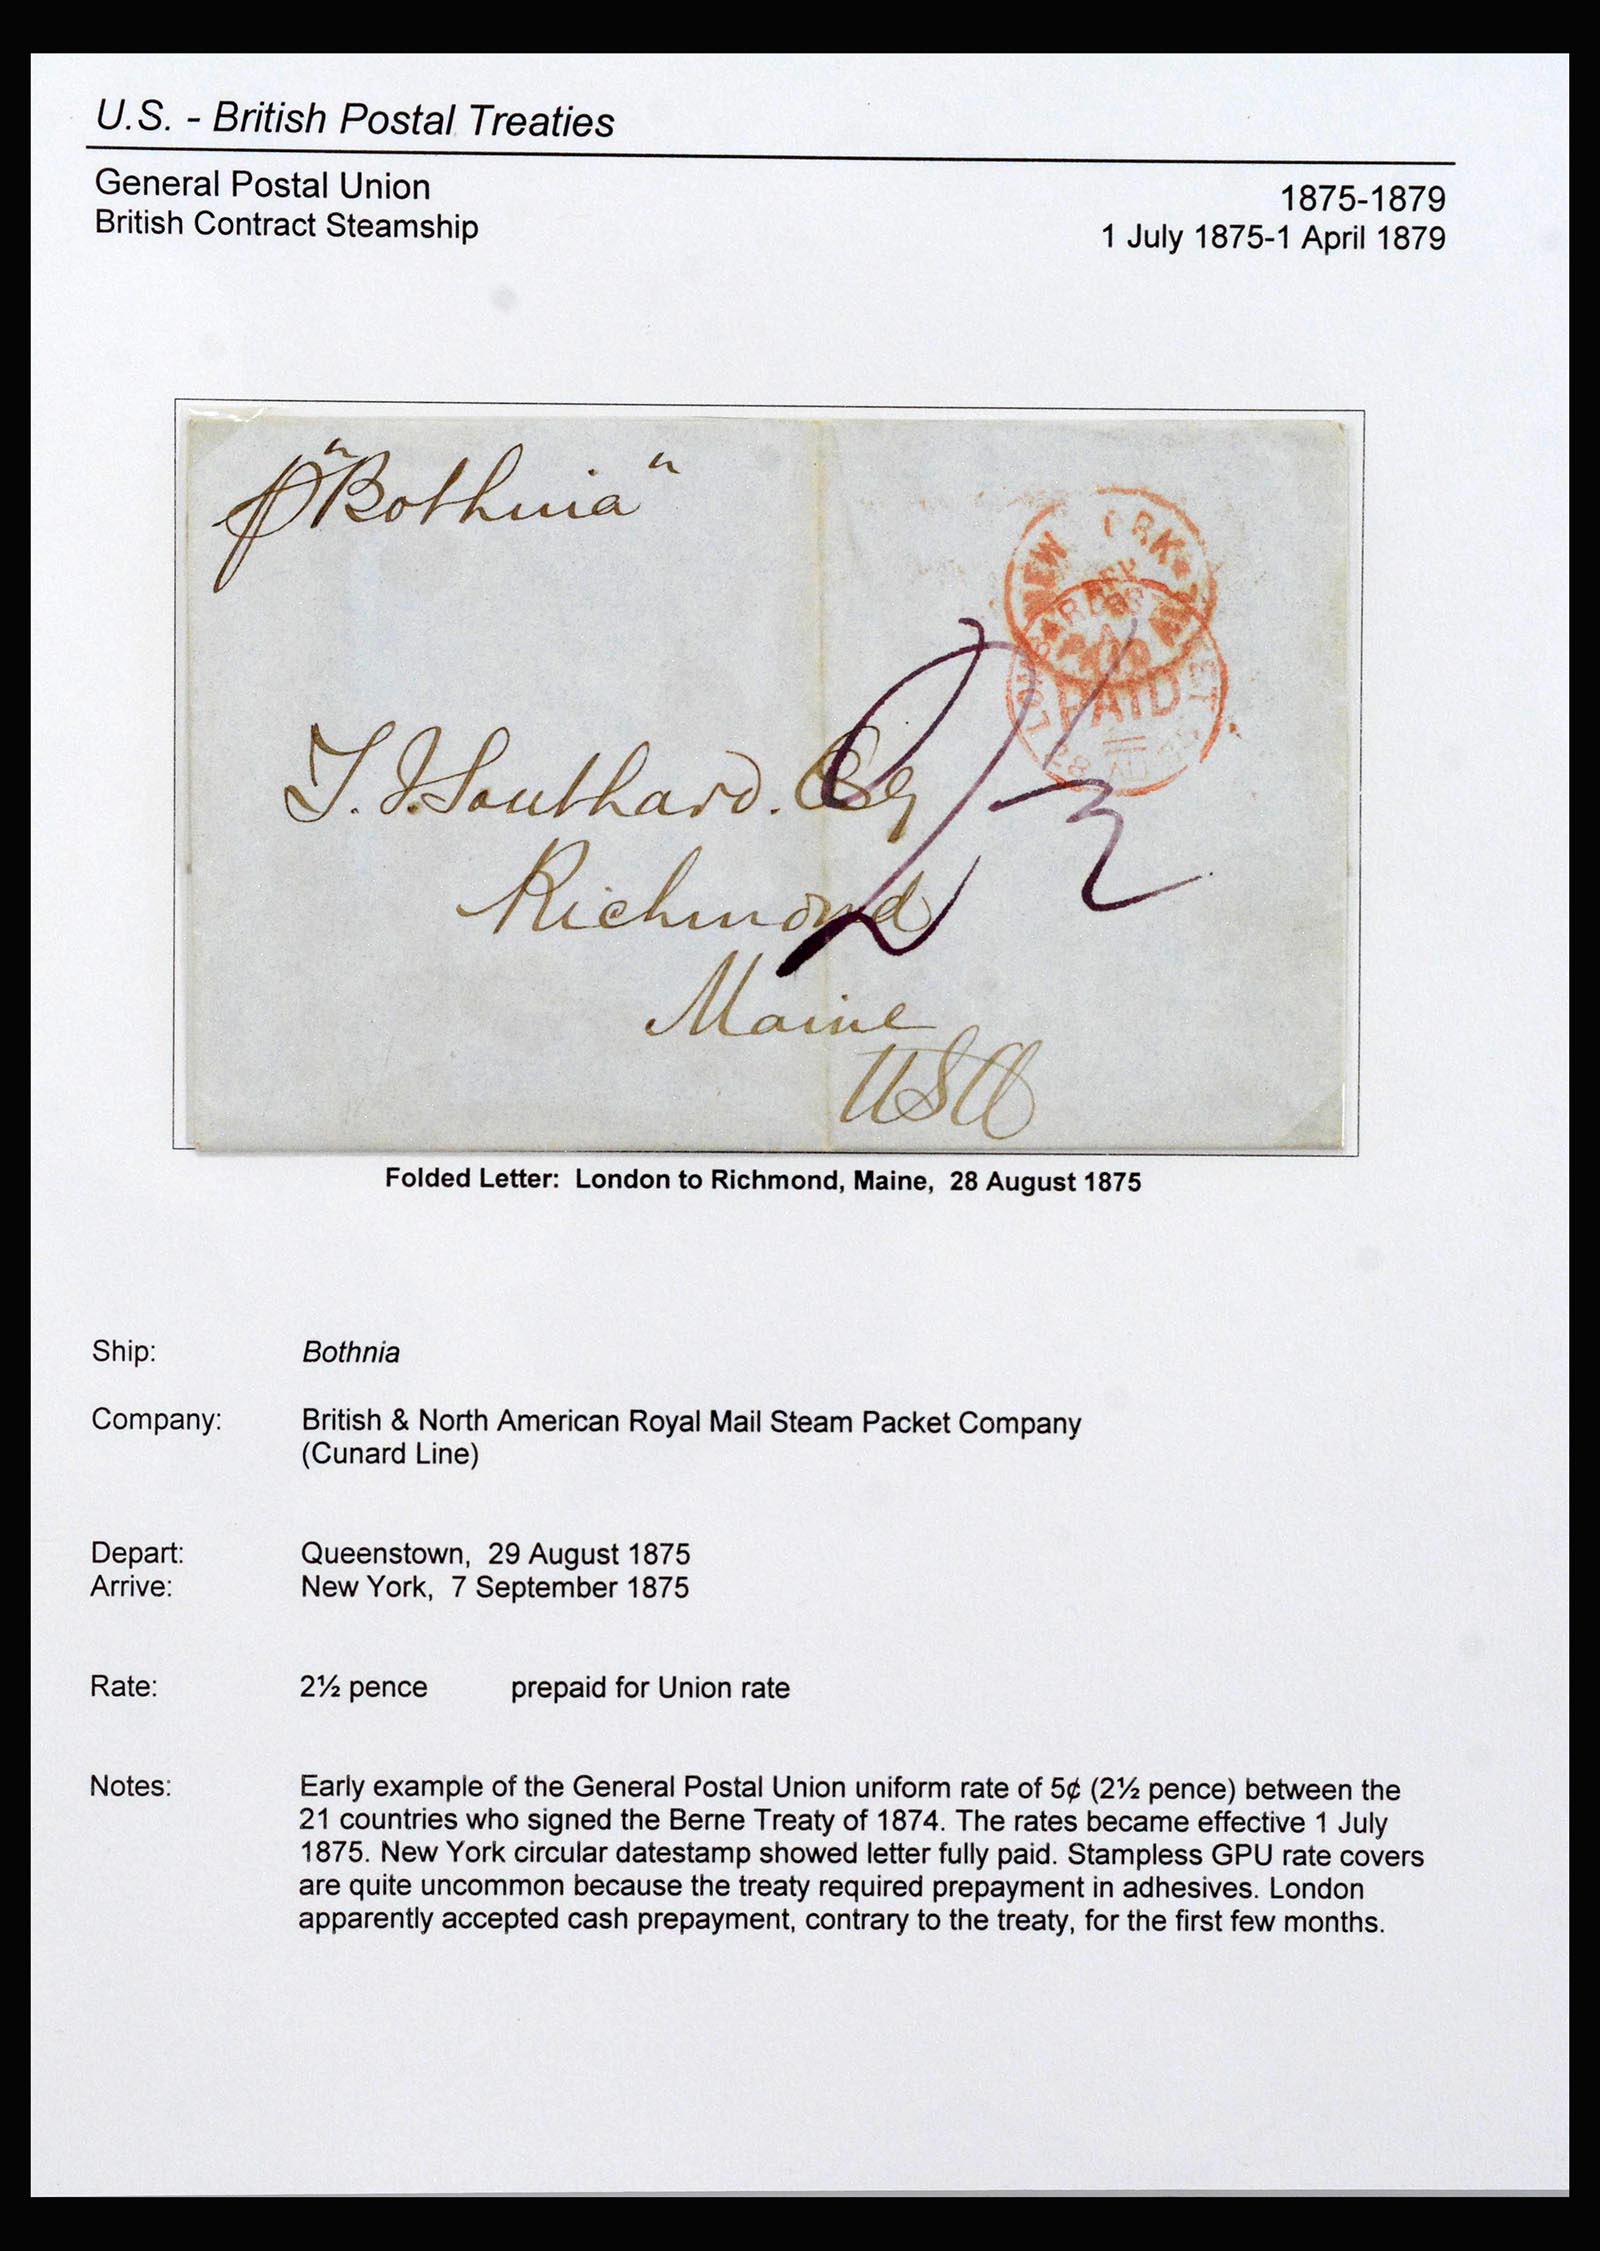 U.S. - British Postal Treaties
General Postal Union 1875-1879
British Contract Steamship 1 July 1875-1 April 1879
p "Bothnia"
NEW YORK
PAID
LOMBARD STREET
PAID
28 AU 75
2 1/2
T. J. Southard. Esq
Richmond
Maine
USA
Folded Letter: London to Richmond, Maine, 28 August 1875
Ship: Bothnia
Company: British & North American Royal Mail Steam Packet Company
(Cunard Line)
Depart: Queenstown, 29 August 1875
Arrive: New York, 7 September 1875
Rate: 2½ pence prepaid for Union rate
Notes: Early example of the General Postal Union uniform rate of 5¢ (2½ pence) between the
21 countries who signed the Berne Treaty of 1874. The rates became effective 1 July
1875. New York circular datestamp showed letter fully paid. Stampless GPU rate covers
are quite uncommon because the treaty required prepayment in adhesives. London
apparently accepted cash prepayment, contrary to the treaty, for the first few months.